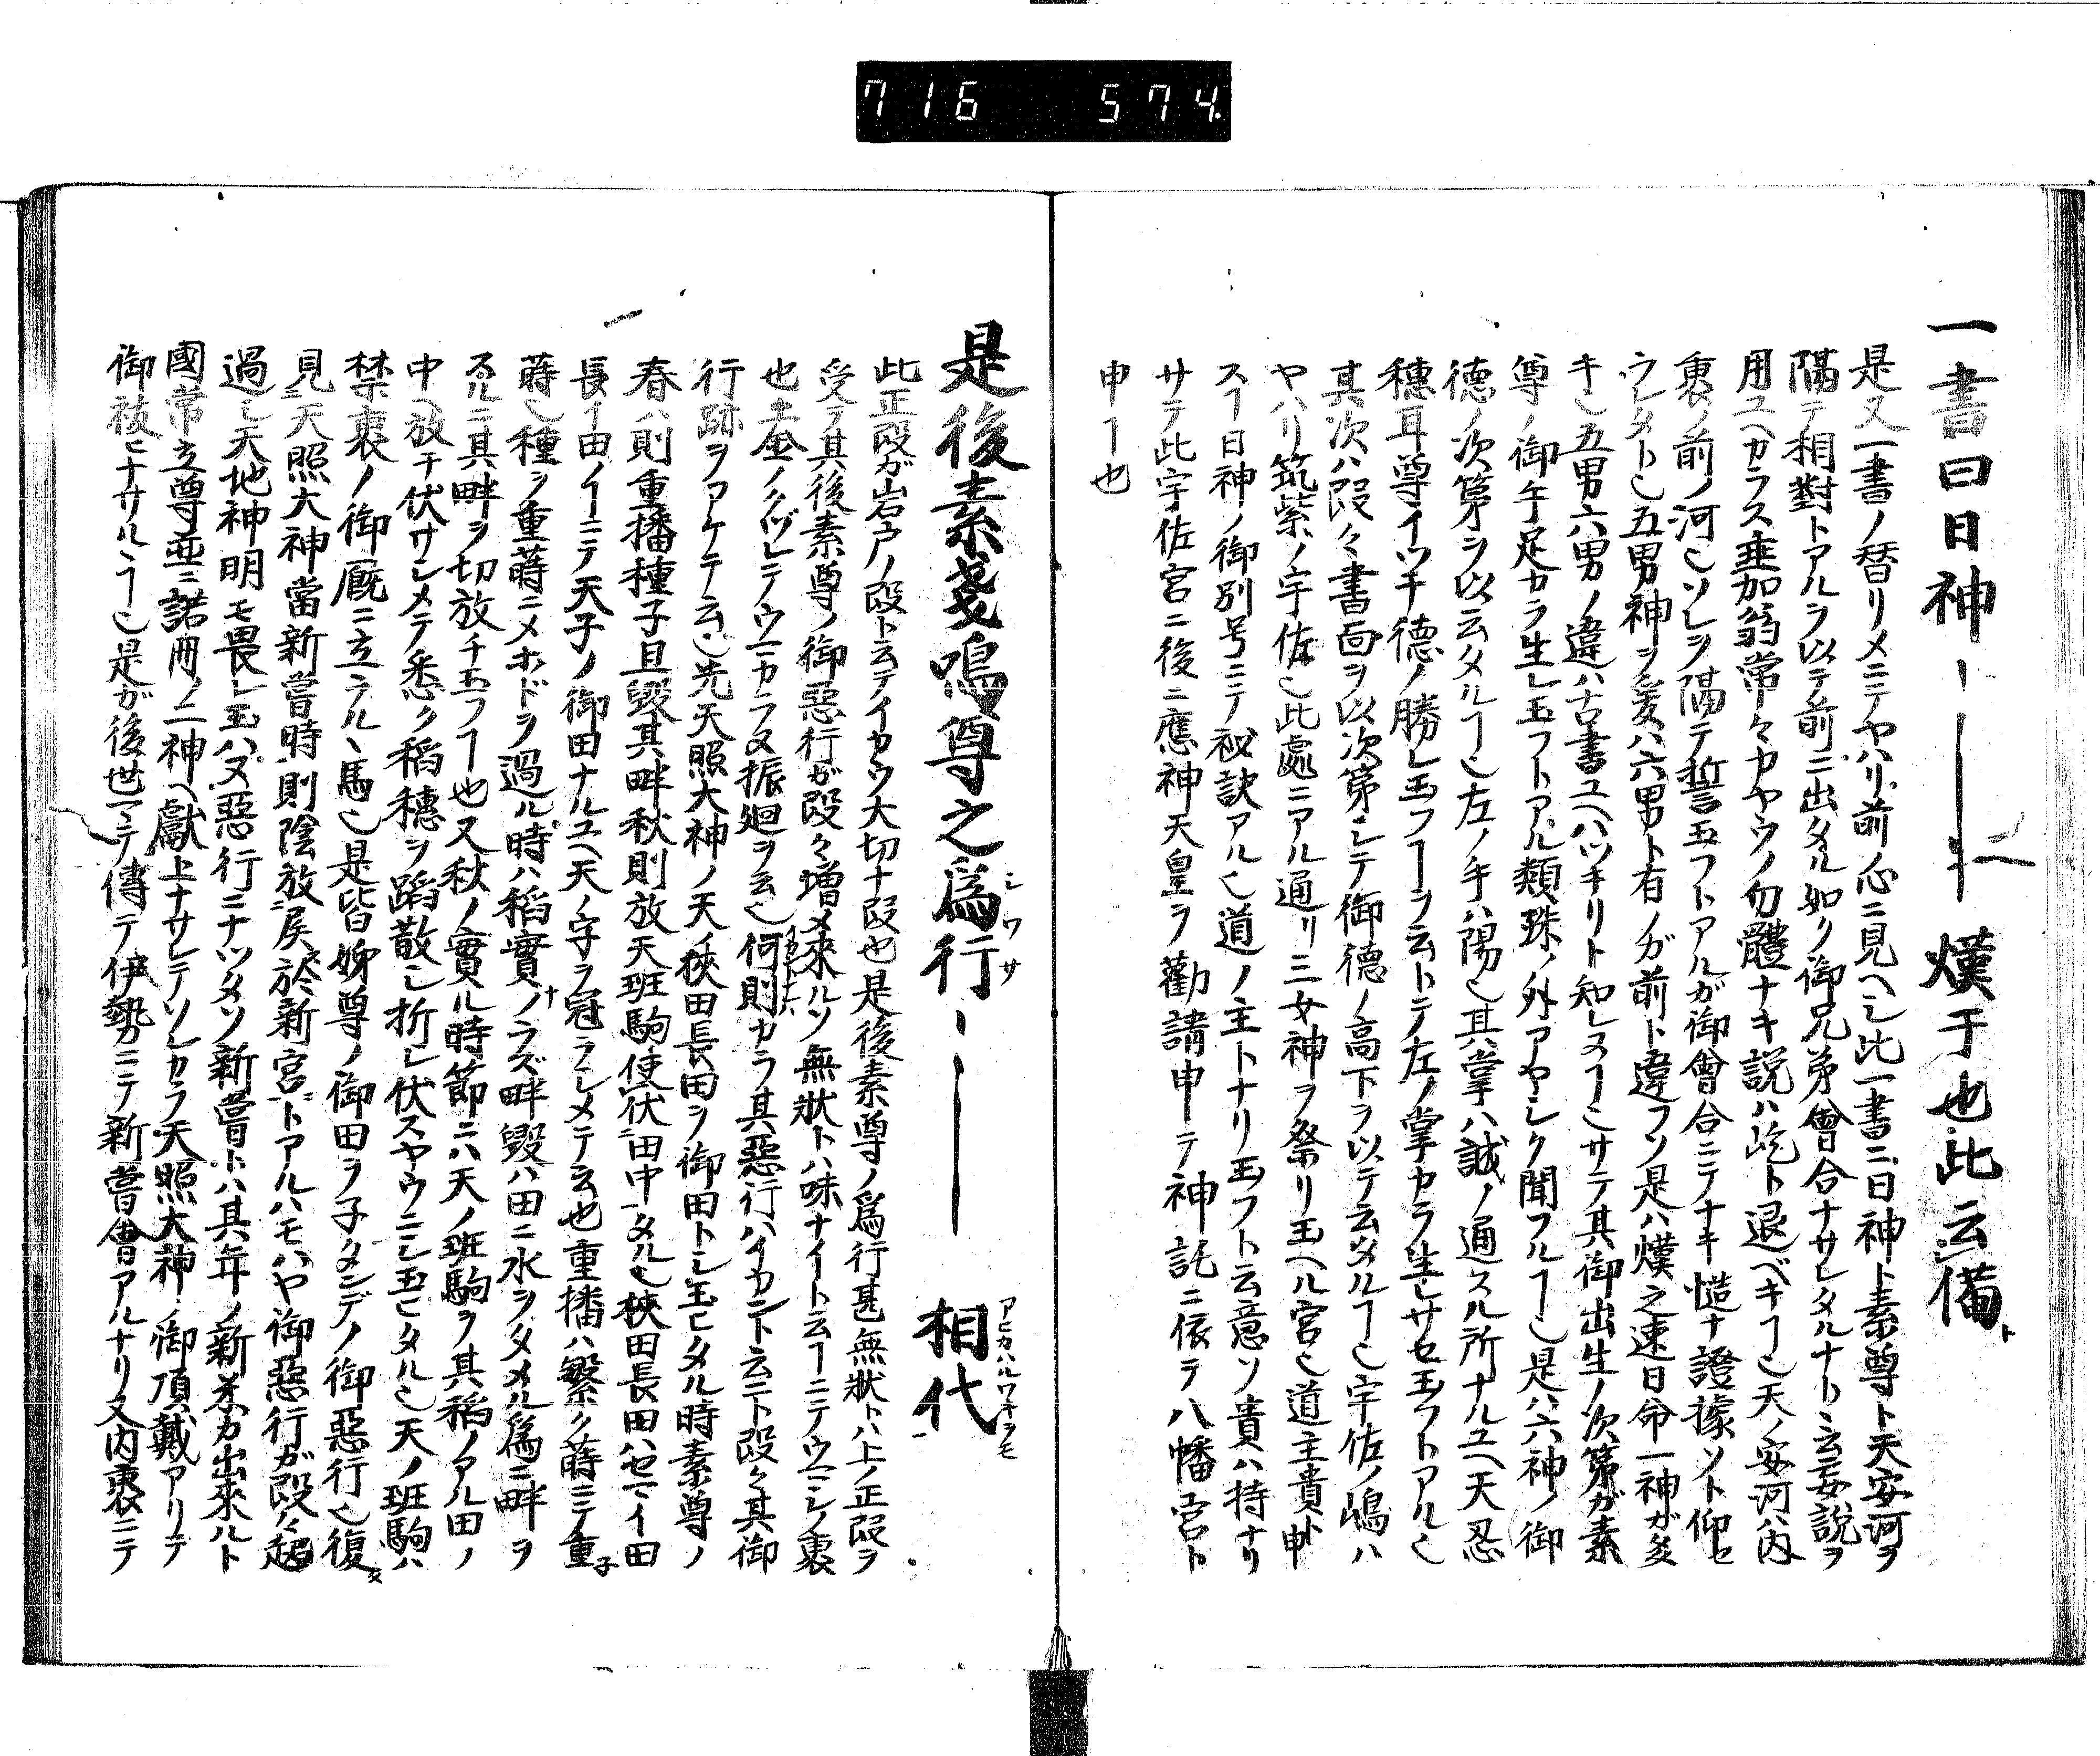 716 574
一書曰日神ーー熯干也此云備
是又一書ノ替リメニテヤハリ前ノ心ニ見ヘシ此一書ニ日神ト素尊ト天安河ヲ
隔テ相對トアルヲ以テ前ニ出タル如ク御兄弟會合ナサレタルナト云妄説ヲ
用ユヘカラス垂加翁常々カヤウノ勿體ナキ説ハ屹ト退ベキヿ也天ノ安河ハ内
裏ノ前ノ河也ソレヲ隔テ誓玉フトアルガ御會合ニテナキ慥ナ證據ソト仰セ
ラレタト也五男神ヲ爰ハ六男ト有ノガ前ト違フソ是ハ熯之速日命一神ガ多
キ也五男六男ノ違ハ古書ユヘハツキリト知レヌヿ也サテ其御出生ノ次第ガ素
尊ノ御手足カラ生レ玉フトアル類殊ノ外アヤシク聞フルヿ也是ハ六神ノ御
德ノ次第ヲ以云タルヿ也左ノ手ハ陽也其掌ハ誠ノ通スル所ナルユヘ天忍
穗耳尊イツチ德ノ勝レ玉フヿヲ云トテ左ノ掌カラ生レサセ玉フトアル也
其次ハ段々書面ヲ以次第シテ御德ノ高下ヲ以テ云タルヿ也宇佐ノ嶋ハ
ヤハリ筑紫ノ宇佐也此處ニアル通リ三女神ヲ祭リ玉ヘル宮也道主貴ト申
スヿ日神ノ御別号ニテ秘訣アル也道ノ主トナリ玉フト云意ソ貴ハ持ナリ
サテ此宇佐宮ニ後ニ應神天皇ヲ勸請申テ神託ニ依テ八幡宮ト
申ヿ也
是後素戔嗚尊之爲行シワサーー相代アヒカハルワキヲモ
此正段ガ岩戸ノ段ト云テイカウ大切ナ段也是後素尊ノ爲行甚無狀トハ上ノ正段ヲ
受テ其後素尊ノ御惡行ガ段々増メ來ルソ無狀トハ味ナイト云ヿニテウマシノ裏
也土金ノクヅレテノウマカラヌ振廻ヲ云也何則カラ其惡行ハイカニト云ニト段々其御
行跡ヲアケテ云也先天照大神ノ天ノ狹田長田ヲ御田トシ玉ヒタル時素尊ノ
春ハ則重播種子且毀其畔秋則放天班駒使伏田中タル也狹田長田ハセマイ田
長イ田ノヿニテ天子ノ御田ナルユヘ天ノ字ヲ冠ラシメテ云也重播ハ繁ク蒔ニテ重子
蒔也種ヲ重蒔ニメホドヲ過ル時ハ稻實ノラズ畔毀ハ田ニ水ヲタメル爲ニ畔ヲ
スルニ其畔ヲ切放チ玉フヿ也又秋ノ實ル時節ニハ天ノ班駒ヲ其稻ノアル田ノ
中ヘ放チ伏サシメテ悉ク稻穗ヲ蹈散シ折レ伏スヤウニシ玉ヒタル也天ノ班駒ハ
禁裏ノ御厩ニ立ラルヽ馬也是皆姉尊ノ御田ヲ子タンデノ御惡行也復又
見ニ天照大神當新嘗時則陰放㞎於新宮トアルハモハヤ御惡行ガ段々起
過シ天地神明モ畏レ玉ハヌ惡行ニナツタソ新嘗トハ其年ノ新米カ出來ルト
國常立尊並ニ諾冊ノ二神ヘ獻上ナサレテソレカラ天照大神ノ御頂戴アリテ
御祓ヒナサルヽヿ也是ガ後世マテ傳テ伊勢ニテ新嘗會アルナリ又内裏ニテ